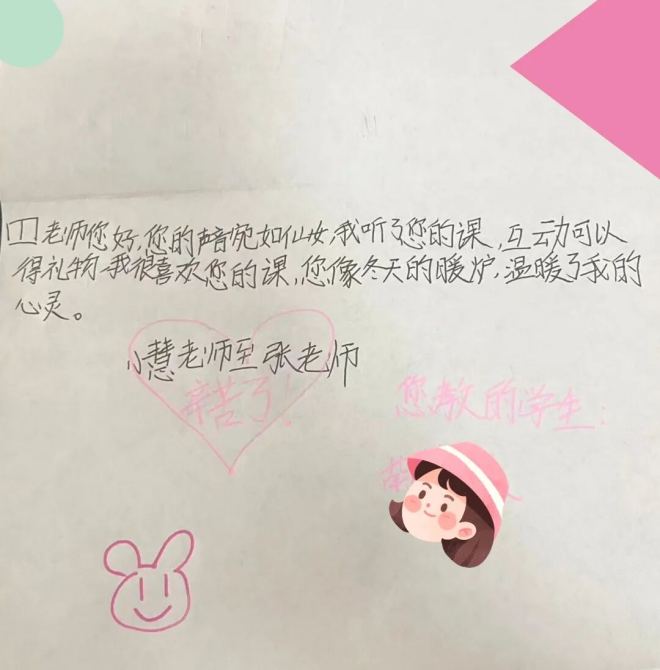 老师您好,您的声音宛如仙女,我听了您的课,互动可以
得礼物.我很喜欢您的课,您像冬天的暖炉,温暖了我的
心灵。
小慧老师至张老师
辛苦了!
您教的学生: